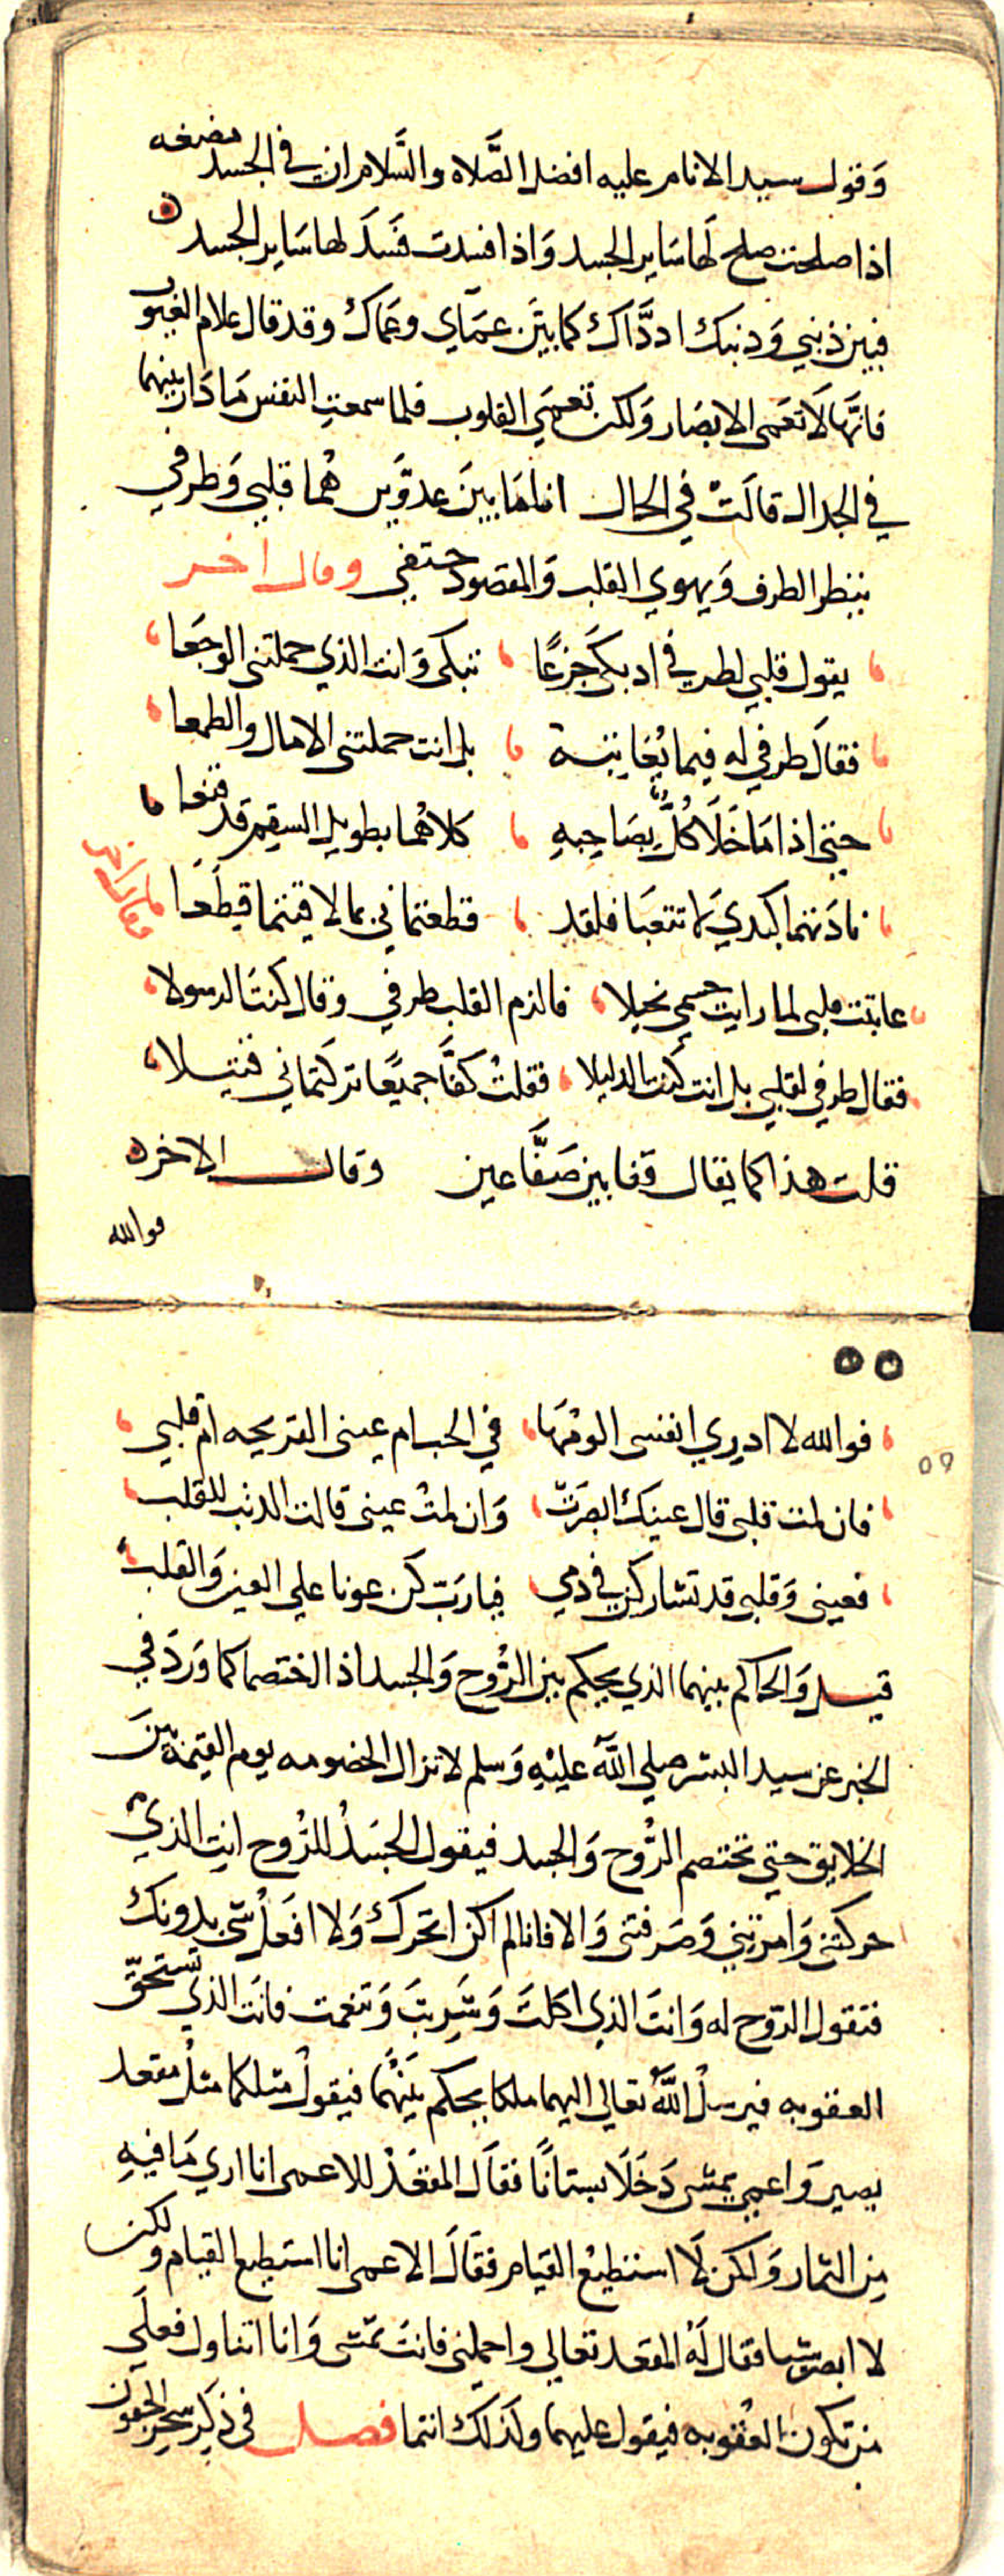 وَقول سيد الانام عليه افضل الصَّلاه والسَّلام ان في الجسد مضغه
اذا صلحت صلح لَها سَاير الجسد وَاذا فسدت فَسَدَ لها سَاير الجسد
فبين ذنبي وَذنبك اذ ذَّاك كما بيَن عَمَاي وعَماك وقد قال علام الغيوب
فانَّها لَا تعَمى الابصَار وَلكن تعمَي القلوب فلما سمعتِ النفس مَا دَار بينهما
في الجدال قالَتْ في الحال انا مَا بينَ عدوَّين هُما قلبي وَطرفي
ينظر الطرف وَيهوي القلب وَالمقصود حتفي وقال اخر
يقول قلبي لطرفي اذ بكَى جَزعًا تبكى وَانت الذي حملتنى الوجَعا
فقالَ طرفي له فيما يُعَاتبه بل انت حملتنى الامال والطمعا
حتى اذا مَا خَلَا كُلٌّ بِصَاحِبهِ كلاهُما بطويل السقم قد قنعا
نادَتهما كبدي لَا تتعبَا فلقد قطعتماني بما لاقيتما قِطَعَا وقال اخر
عاتبت قلبى لما رايت جسمي نحيلا فالزم القلب طرفي وقال كنتَ الرسولا
فقال طرفي لقلبي بل انت كُنت الدليلا فقلتْ كفَّا جميعًا تركتماني قتيلا
قلت هذا كما يقال قفا بين صَفَّاعين وقال الاخر
فوالله
٥٥
59
فوالله لا ادري انفسى الومُهَا في الحب ام عينى القريحه ام قلبي
فان لمت قلبى قال عينيك ابصَرَتْ وَان لمتْ عينى قالت الذنب للقلب
فعينى وَقلبى قد تشاركن في دمي فيارَب كَن عونا علي العين وَالقلب
قيل وَالحاكم بينهما الذي يحكم بين الرُّوح وَالجسد اذ اختصما كما وَرَدَ في
الخبر عن سيد البشر صلي اللَّه عليْهِ وَسلم لا تزال الخصومه يوم القيمة بينَ
الخلايق حتى تختصم الرُّوح وَالجسد فيقول الجسَدُ للرُّوح انتِ الذي
حركتنى وَامرتيني وَصَرفتنى وَالا فانا لم اكن اتحرك وَلا افعَلُ شَى بدونك
فتقول الروح له وَانتَ الذي اكلتَ وَشَرِبتَ وَتنعمت فانت الذي تستحقَّ
العقوبه فيرسلُ اللَّهُ تعالي اليهما ملكا يحكم بيَنُهما فيقولُ مثلكما مثلُ مقعد
بصير وَاعمى يمشى دَخَلَا بستانًا فقالَ المقعَدُ للاعمى انا اري مَا فيهِ
مِن الثمار وَلكن لَا استطيْع القيام فقالَ الاعمى انا استطيع القيام ولكن
لا ابصر شيا فقال لَهُ المقعد تعالي واحملنى فانتَ تمشى وَانا اتناول فعلَي
من تكون العقوبه فيقول عليهما وَلذلك انتما فصل في ذكر سحر الجفون